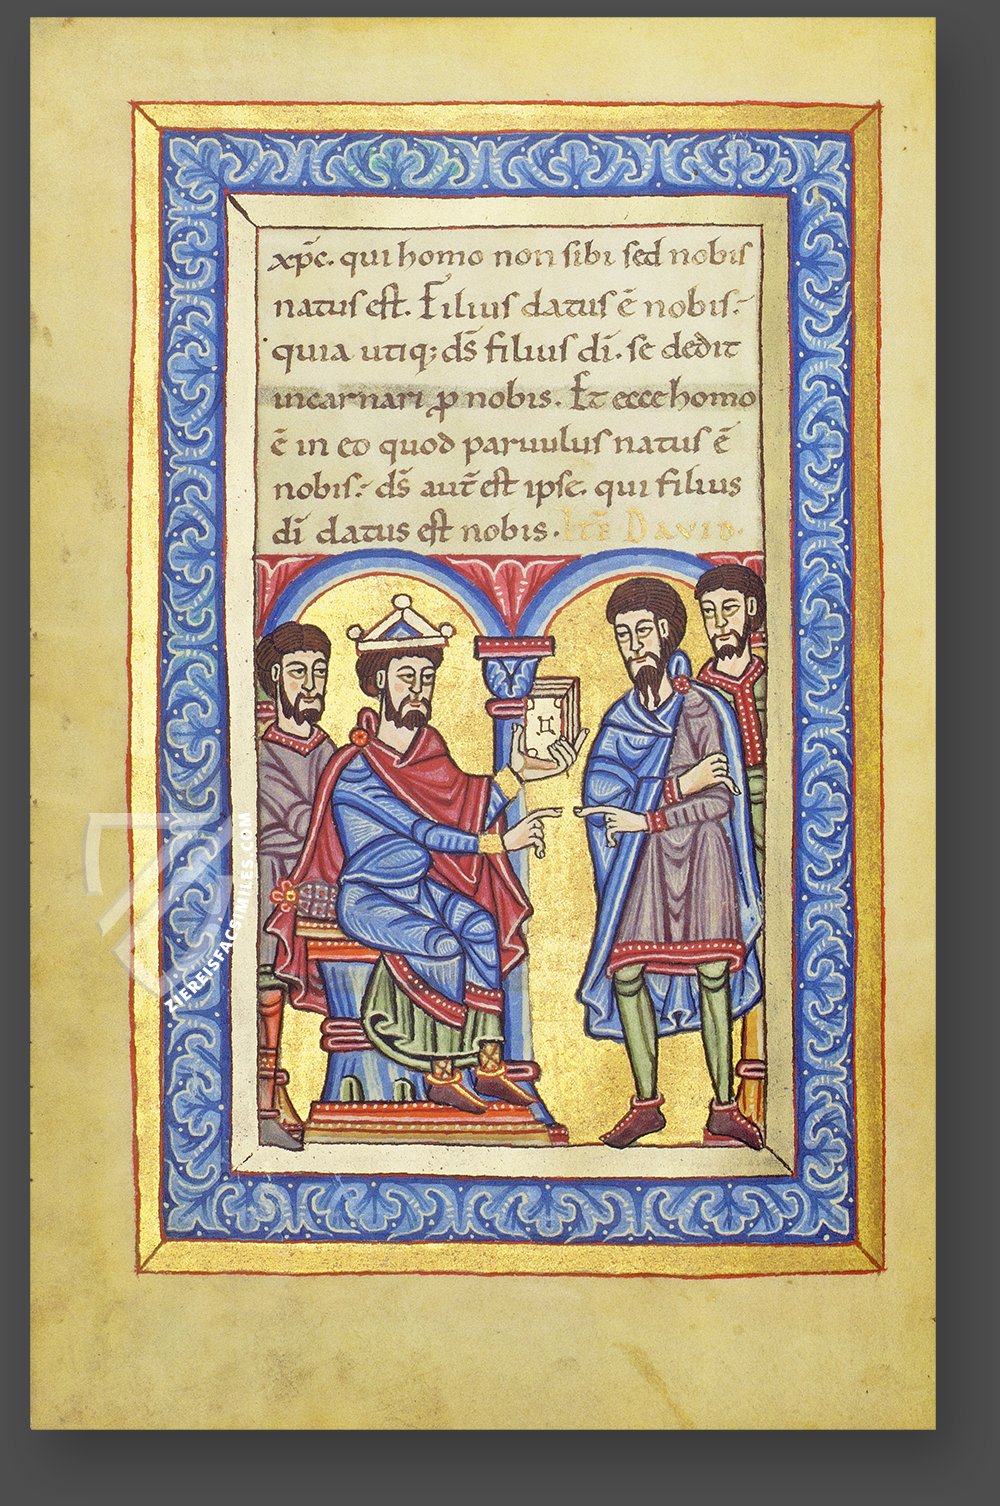 xp̄c. qui homo non sibi sed nobis
natus est. Filius datus ē nobis.
quia utiq; ds̄ filius di̅. se dedit
incarnari ꝓ nobis. Et ecce homo
ē in eo quod paruulus natus ē
nobis. ds̄ aut̄ est ipse. qui filius
di̅ datus est nobis. Ite̅ DAVID.
ZIEREISFACSIMILES.COM